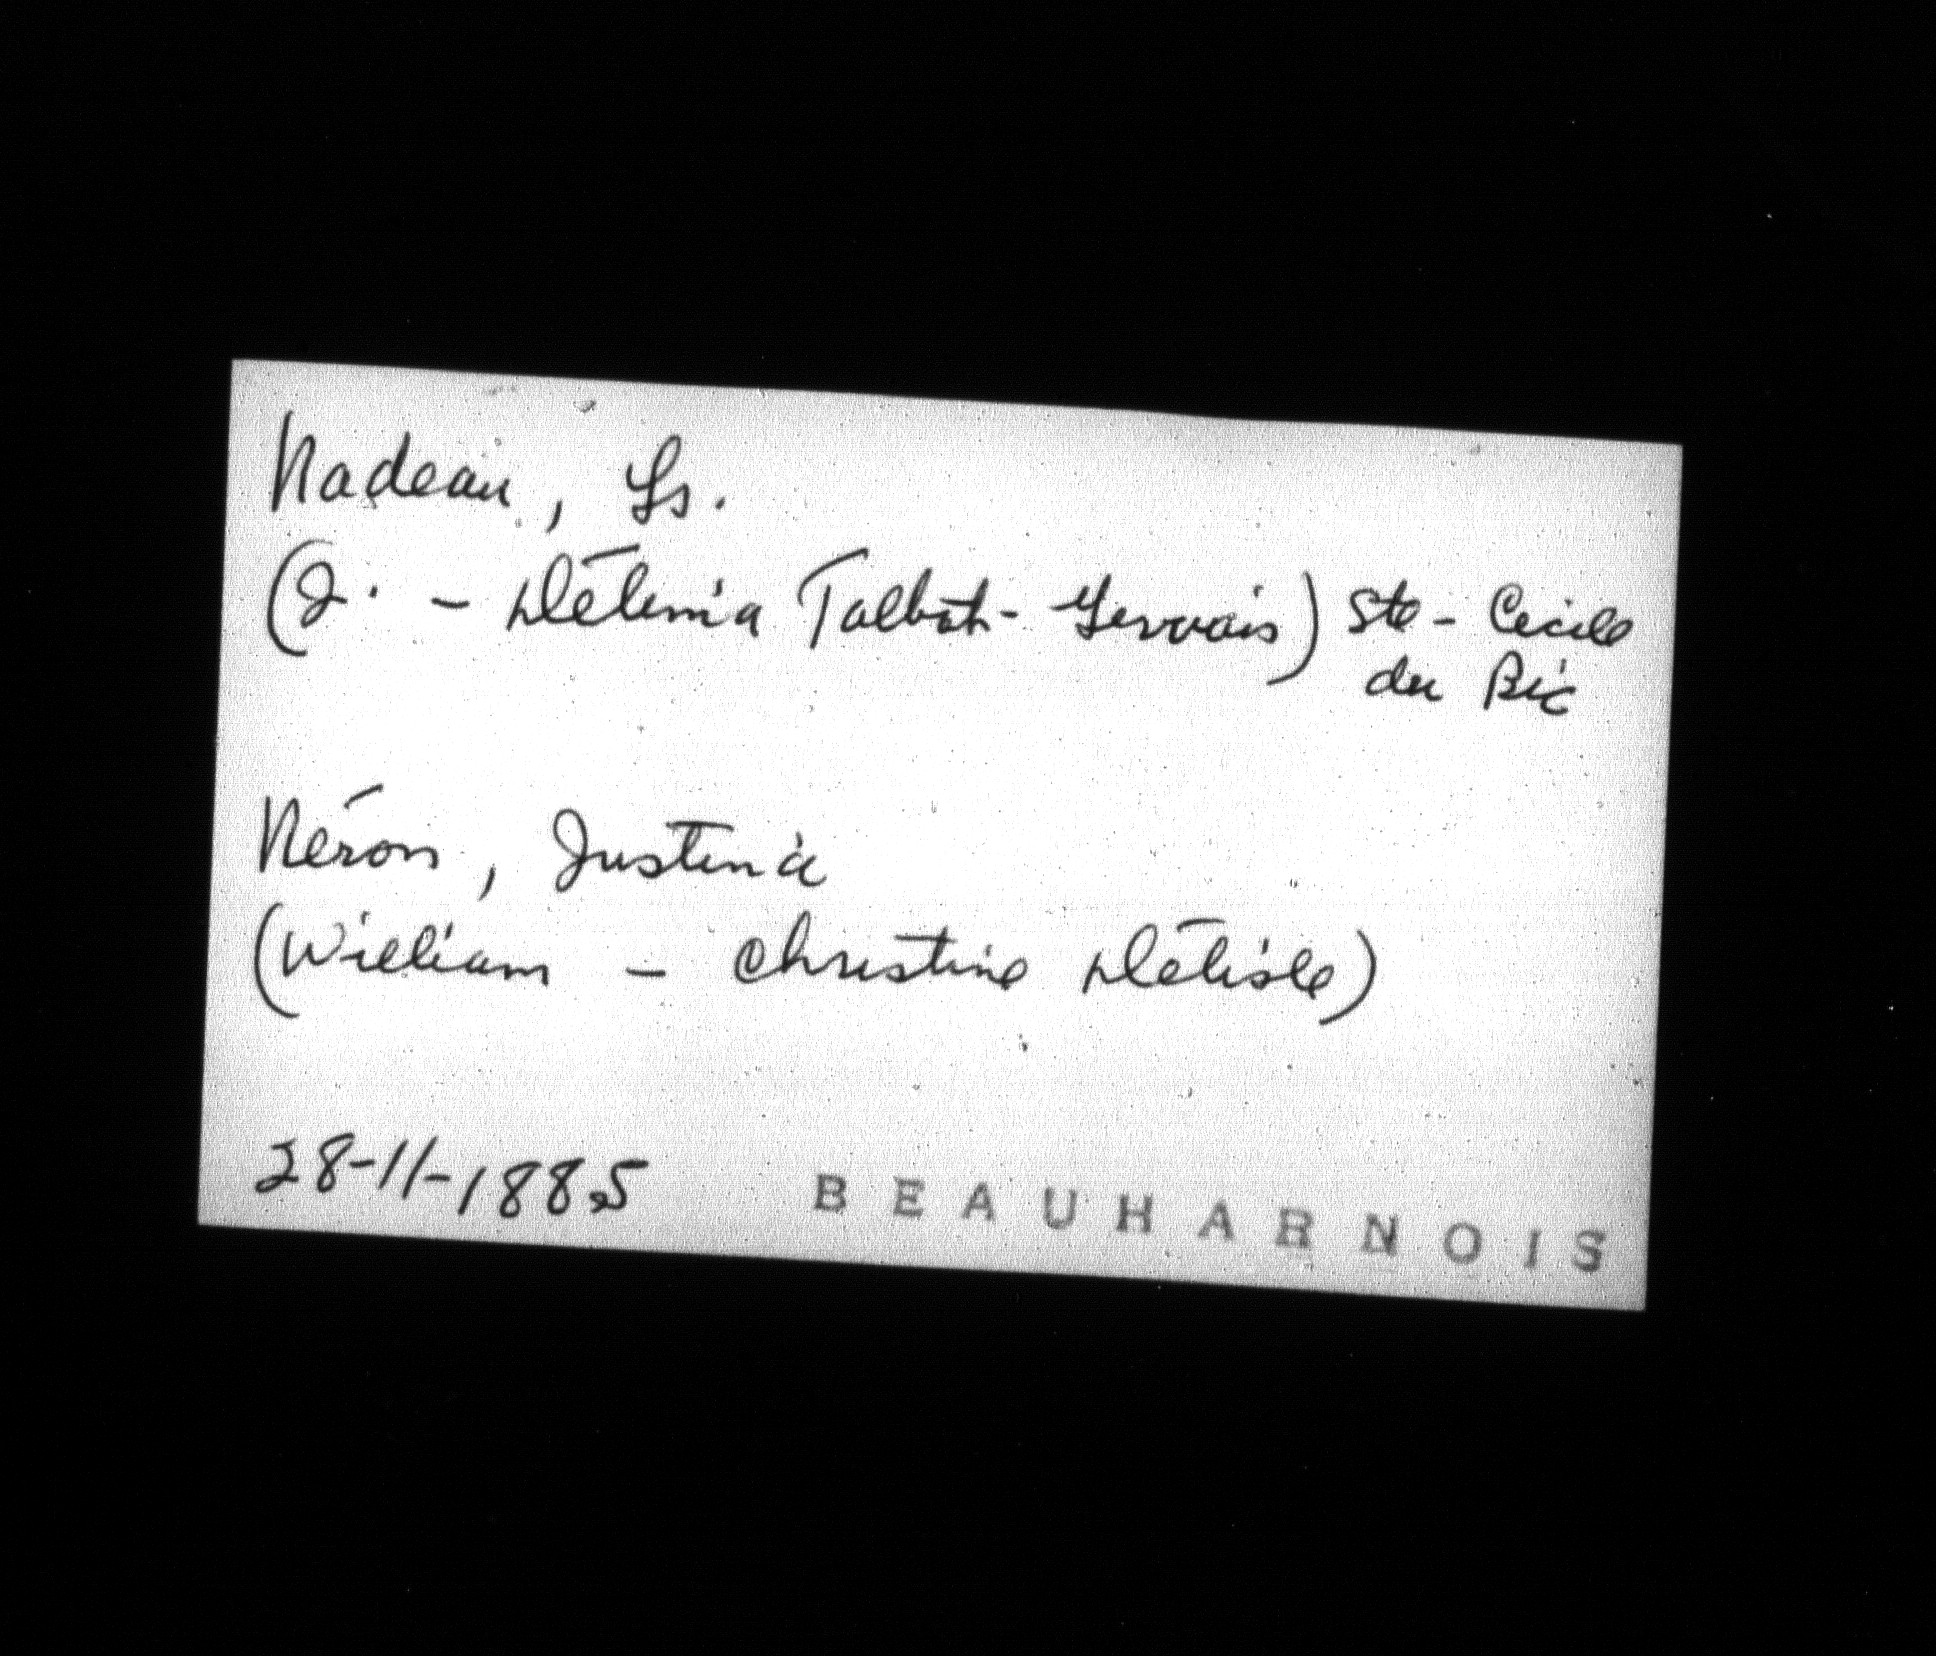 Nadeau, Ls.
(J. - Délima Talbot-Gervais) Ste-Cecile
du Bic
Néron, Justina
(William - Christine Délisle)
28-11-1885 BEAUHARNOIS